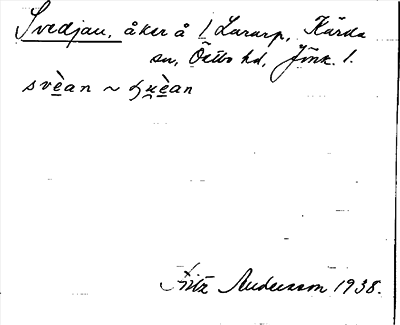 Svedjan, åker å 1 Lararp, Kärda
sn, Östbo hd, Jönk. l.
svèan ~ 
Fritz Andersson 1938.